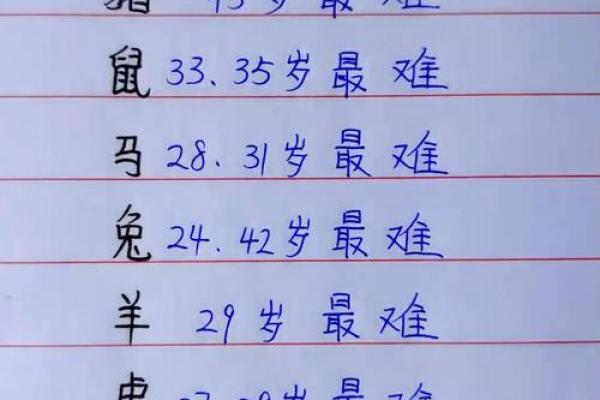 猪 45岁最难
鼠 33.35岁最难
马 28.31岁最难
兔 24.42岁最难
羊 29岁最难
岁最难